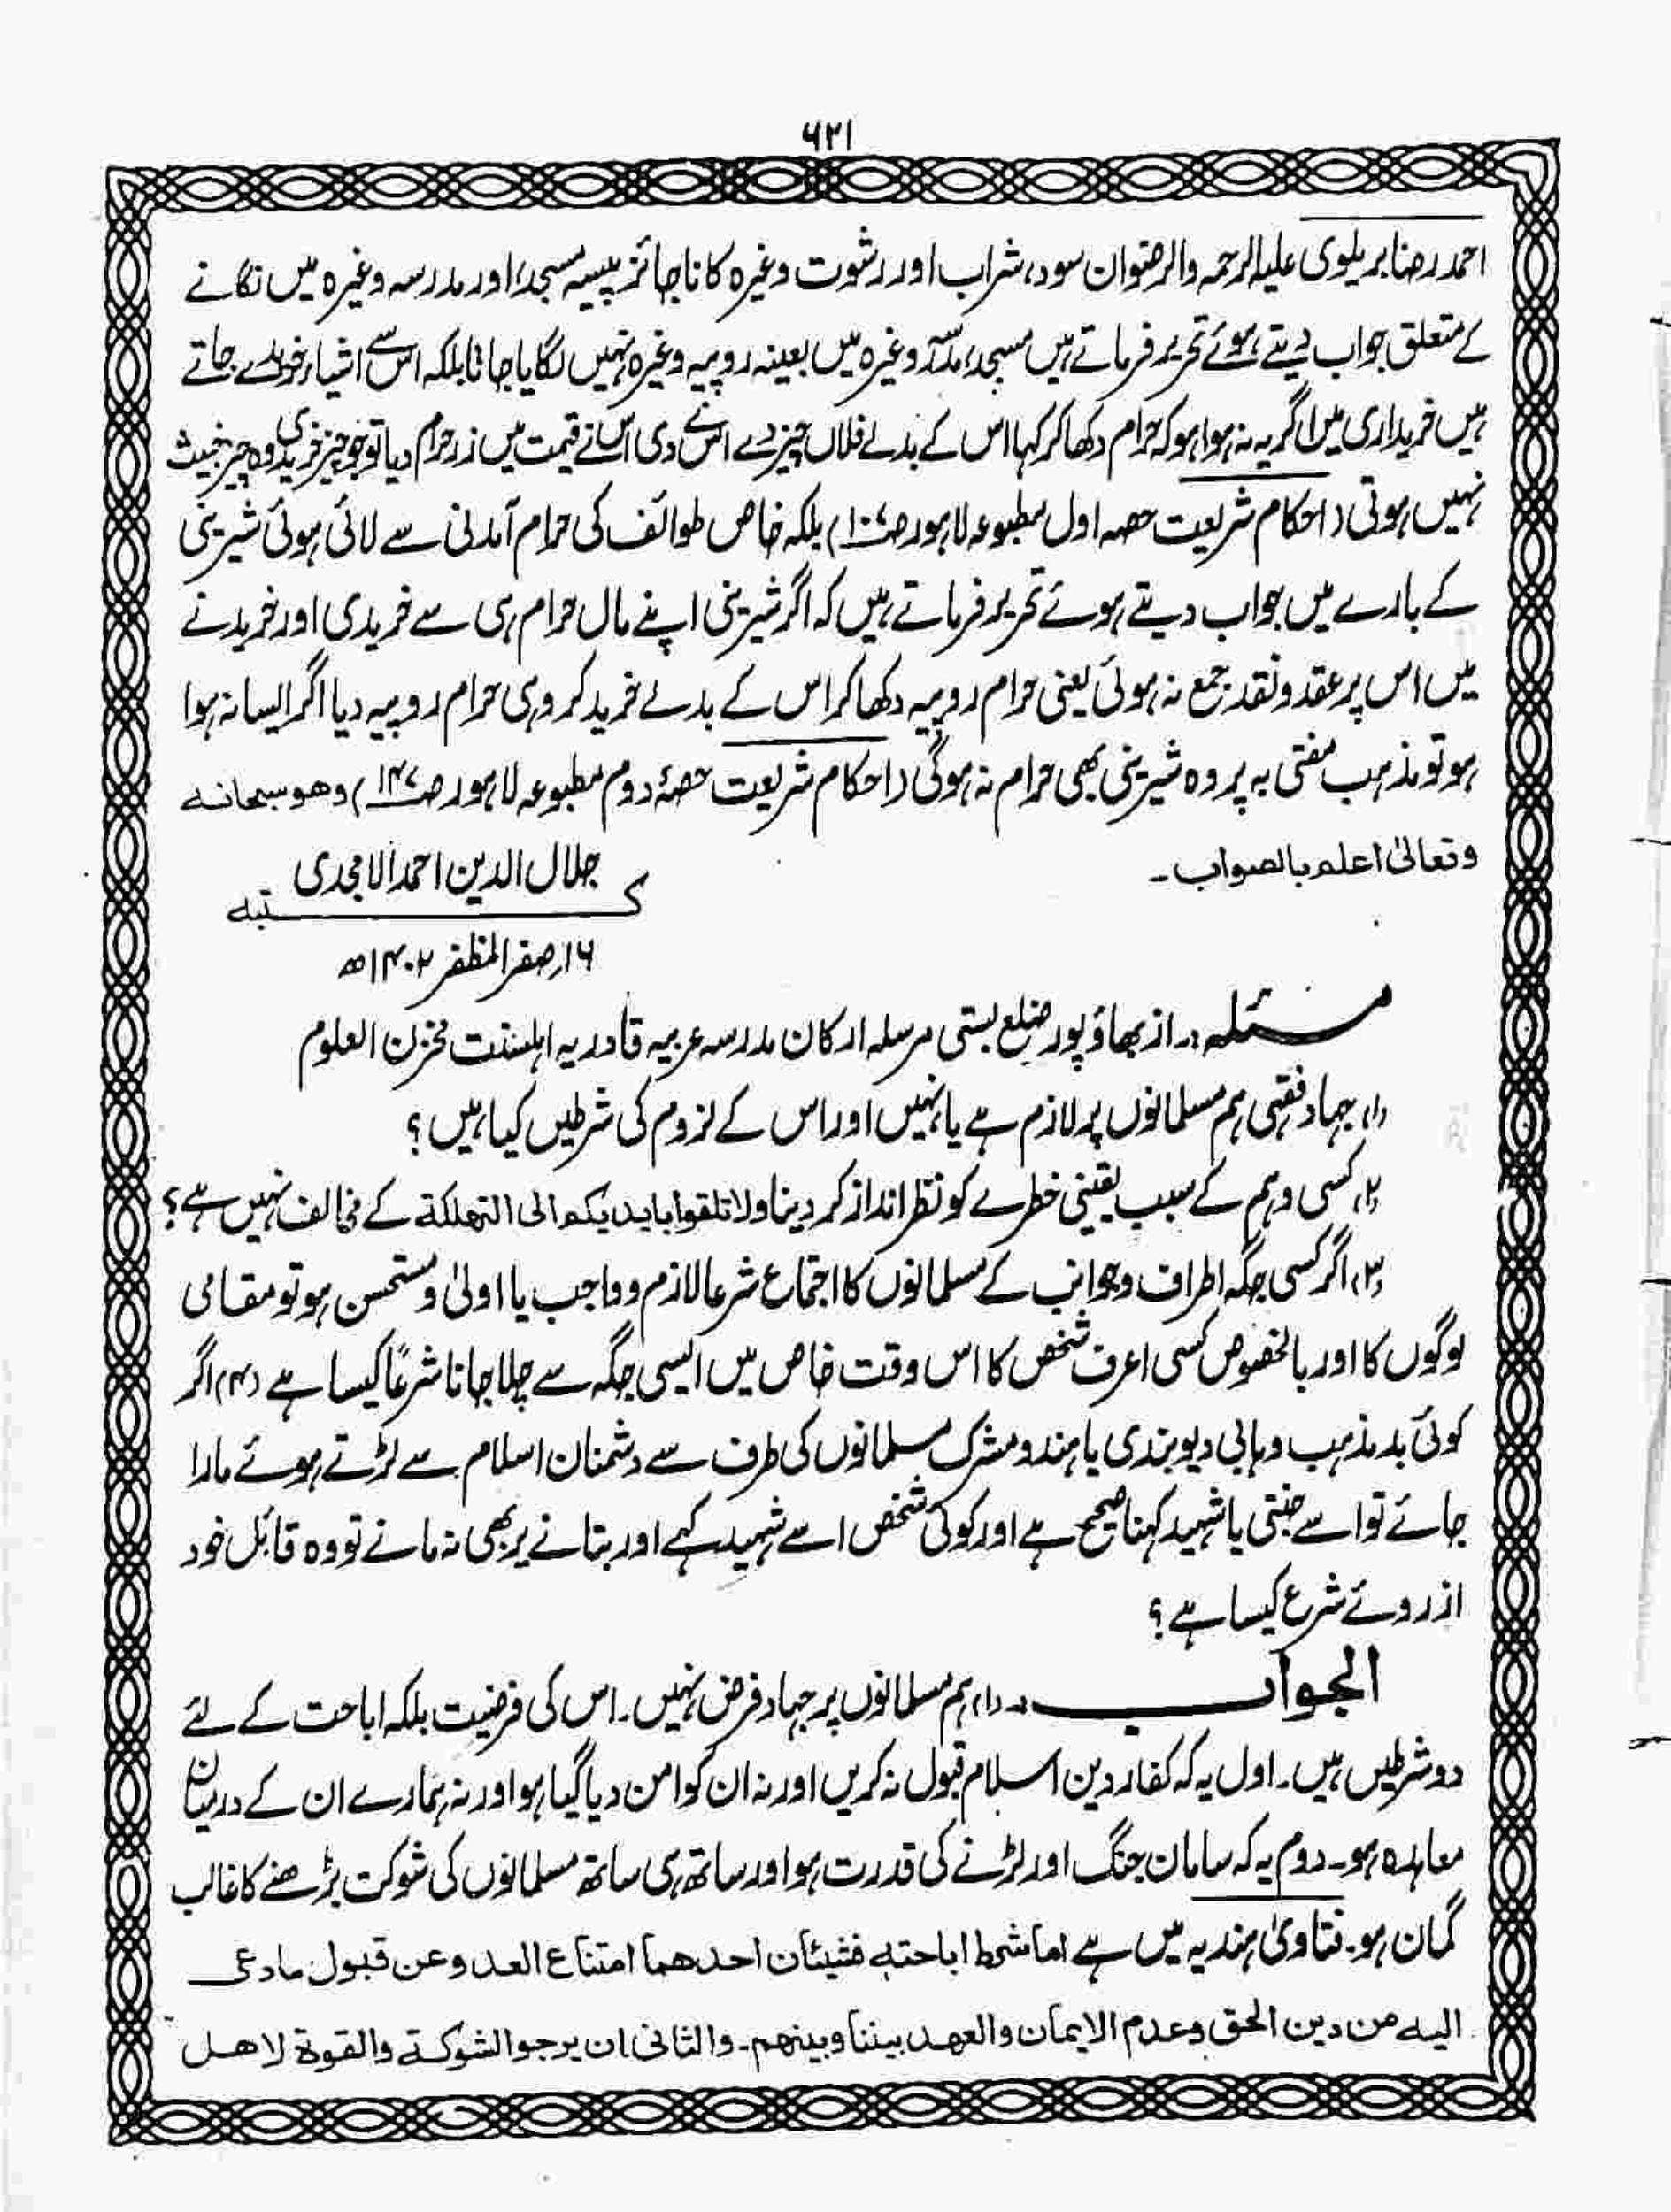 ۶۲۱
احمد رضا بریلوی علیہ الرحمہ والرضوان سود، شراب اور رشوت وغیرہ کا ناجائز پیسہ مسجد، اور مدرسہ وغیرہ میں لگانے
کے متعلق جواب دیتے ہوئے تحریر فرماتے ہیں مسجد، مدرسہ وغیرہ میں بعینہ روپیہ وغیرہ نہیں لگایا جاتا بلکہ اس سے اشیاء خریدے جاتے
ہیں خریداری میں اگر یہ نہ ہوا ہو کہ حرام دکھا کر کہا اس کے بدلے فلاں چیز دے اس نے دی اس نے قیمت میں زر حرام دیا تو جو چیز خریدی وہ چیز خبیث
نہیں ہوتی (احکام شریعت حصہ اول مطبوعہ لاہور) بلکہ خاص طوائف کی حرام آمدنی سے لائی ہوئی شیرینی
کے بارے میں جواب دیتے ہوئے تحریر فرماتے ہیں کہ اگر شیرینی اپنے مال حرام ہی سے خریدی اور خریدنے
میں اس پر عقد و نقد جمع نہ ہوئی یعنی حرام روپیہ دکھا کر اس کے بدلے خرید کر وہی حرام روپیہ دیا اگر ایسا نہ ہوا
ہو تو مذہب مفتی بہ پر وہ شیرینی بھی حرام نہ ہوگی (احکام شریعت حصۂ دوم مطبوعہ لاہور ص۱۴۷) وھو سبحانہ
وتعالیٰ اعلم بالصواب۔
جلال الدین احمد الامجدی
کتبہ
۱۶ر صفر المظفر ۱۴۰۲ھ
مسئلہ:۔ از بھاؤپور ضلع بستی مرسلہ ارکان مدرسہ عربیہ قادریہ اہلسنت مخزن العلوم
(۱) جہاد فقہی ہم مسلمانوں پر لازم ہے یا نہیں اور اس کے لزوم کی شرطیں کیا ہیں؟
(۲) کسی وہم کے سبب یقینی خطرے کو نظر انداز کر دینا ولا تلقوا بایدیکم الی التھلکۃ کے مخالف نہیں ہے؟
(۳) اگر کسی جگہ اطراف وجوانب کے مسلمانوں کا اجتماع شرعا لازم و واجب یا اولیٰ و مستحسن ہو تو مقامی
لوگوں کا اور بالخصوص کسی اعرف شخص کا اس وقت خاص میں ایسی جگہ سے چلا جانا شرعًا کیسا ہے (۴) اگر
کوئی بد مذہب وہابی دیوبندی یا ہندو مشرک مسلمانوں کی طرف سے دشمنان اسلام سے لڑتے ہوئے مارا
جائے تو اسے جنتی یا شہید کہنا صحیح ہے اور کوئی شخص اسے شہید کہے اور بتانے پر بھی نہ مانے تو وہ قائل خود
از روئے شرع کیسا ہے؟
الجواب:۔ (۱) ہم مسلمانوں پر جہاد فرض نہیں۔ اس کی فرضیت بلکہ اباحت کے لئے
دو شرطیں ہیں۔ اول یہ کہ کفار دین اسلام قبول نہ کریں اور نہ ان کو امن دیا گیا ہو اور نہ ہمارے ان کے درمیان
معاہدہ ہو۔ دوم یہ کہ سامان جنگ اور لڑنے کی قدرت ہو اور ساتھ ہی ساتھ مسلمانوں کی شوکت بڑھنے کا غالب
گمان ہو۔ فتاویٰ ہندیہ میں ہے اما شرط اباحتہ فشیئان احدھما امتناع العدو عن قبول ما دعی
الیہ من دین الحق وعدم الایمان والعھد بیننا وبینھم۔ والثانی ان یرجو الشوکۃ والقوۃ لاھل